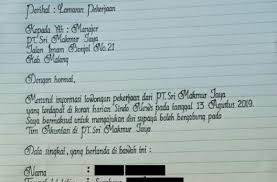 Perihal : Lamaran Pekerjaan
Kepada Yth : Manajer
PT. Sri Makmur Jaya
Jalan Imam Bonjol No.21
Kab. Malang
Dengan hormat,
Menurut informasi lowongan pekerjaan dari PT. Sri Makmur Jaya
yang terdapat di koran harian Sindo News pada tanggal 13 Agustus 2019.
Saya bermaksud untuk mengajukan diri supaya boleh bergabung pada
Tim Akuntan di PT. Sri Makmur Jaya.
Data singkat, yang bertanda di bawah ini :
Nama :